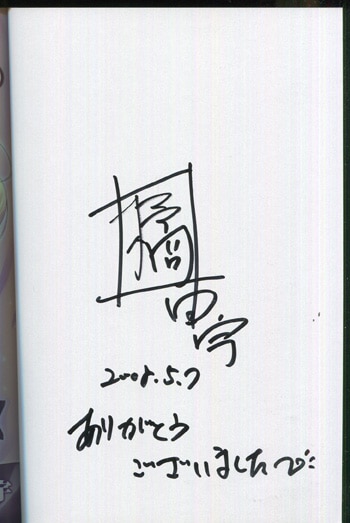 橘
由宇
2008.5.7
ありがとう
ございました